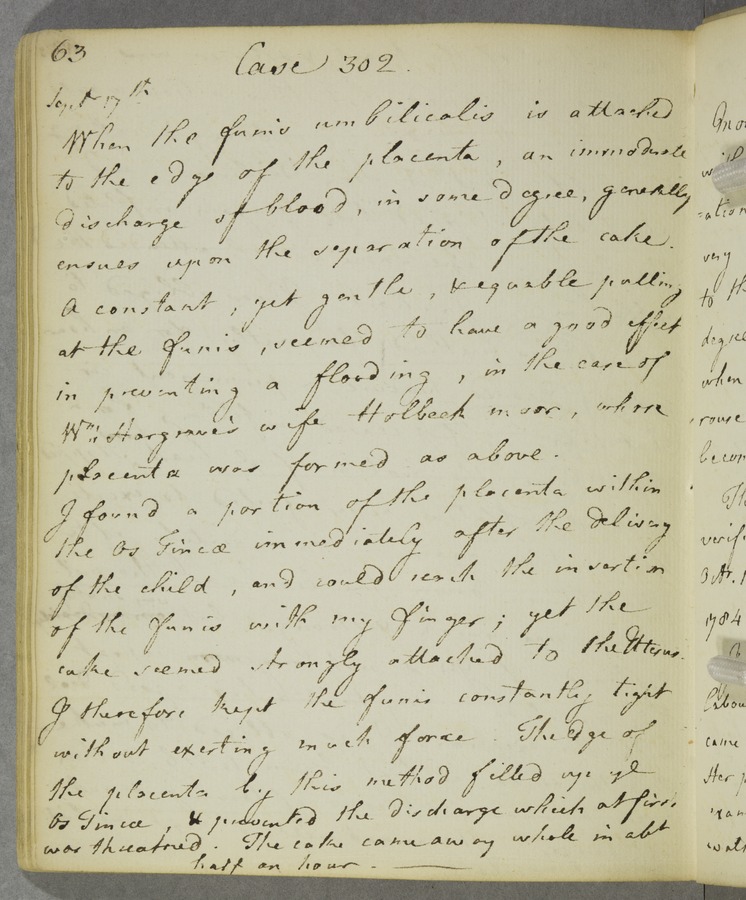 63
Case 302.
Sept 17th
When the funis umbilicalis is attached
to the edge of the placenta, an immoderate
discharge of blood, in some degree, generally
ensues upon the separation of the cake.
A constant, yet gentle, & equable pulling
at the funis, seemed to have a good effect
in preventing a flooding, in the case of
Wm. Hargrave's wife Holbeck moor, whose
placenta was formed as above.
I found a portion of the placenta within
the Os Tincæ immediately after the delivery
of the child, and could reach the insertion
of the funis with my finger; yet the
cake seemed strongly attached to the Uterus.
I therefore kept the funis constantly tight
without exerting much force. The edge of
the placenta by this method filled up ye
Os Tincæ, & prevented the discharge which at first
was threatned. The cake came away whole in abt
half an hour.